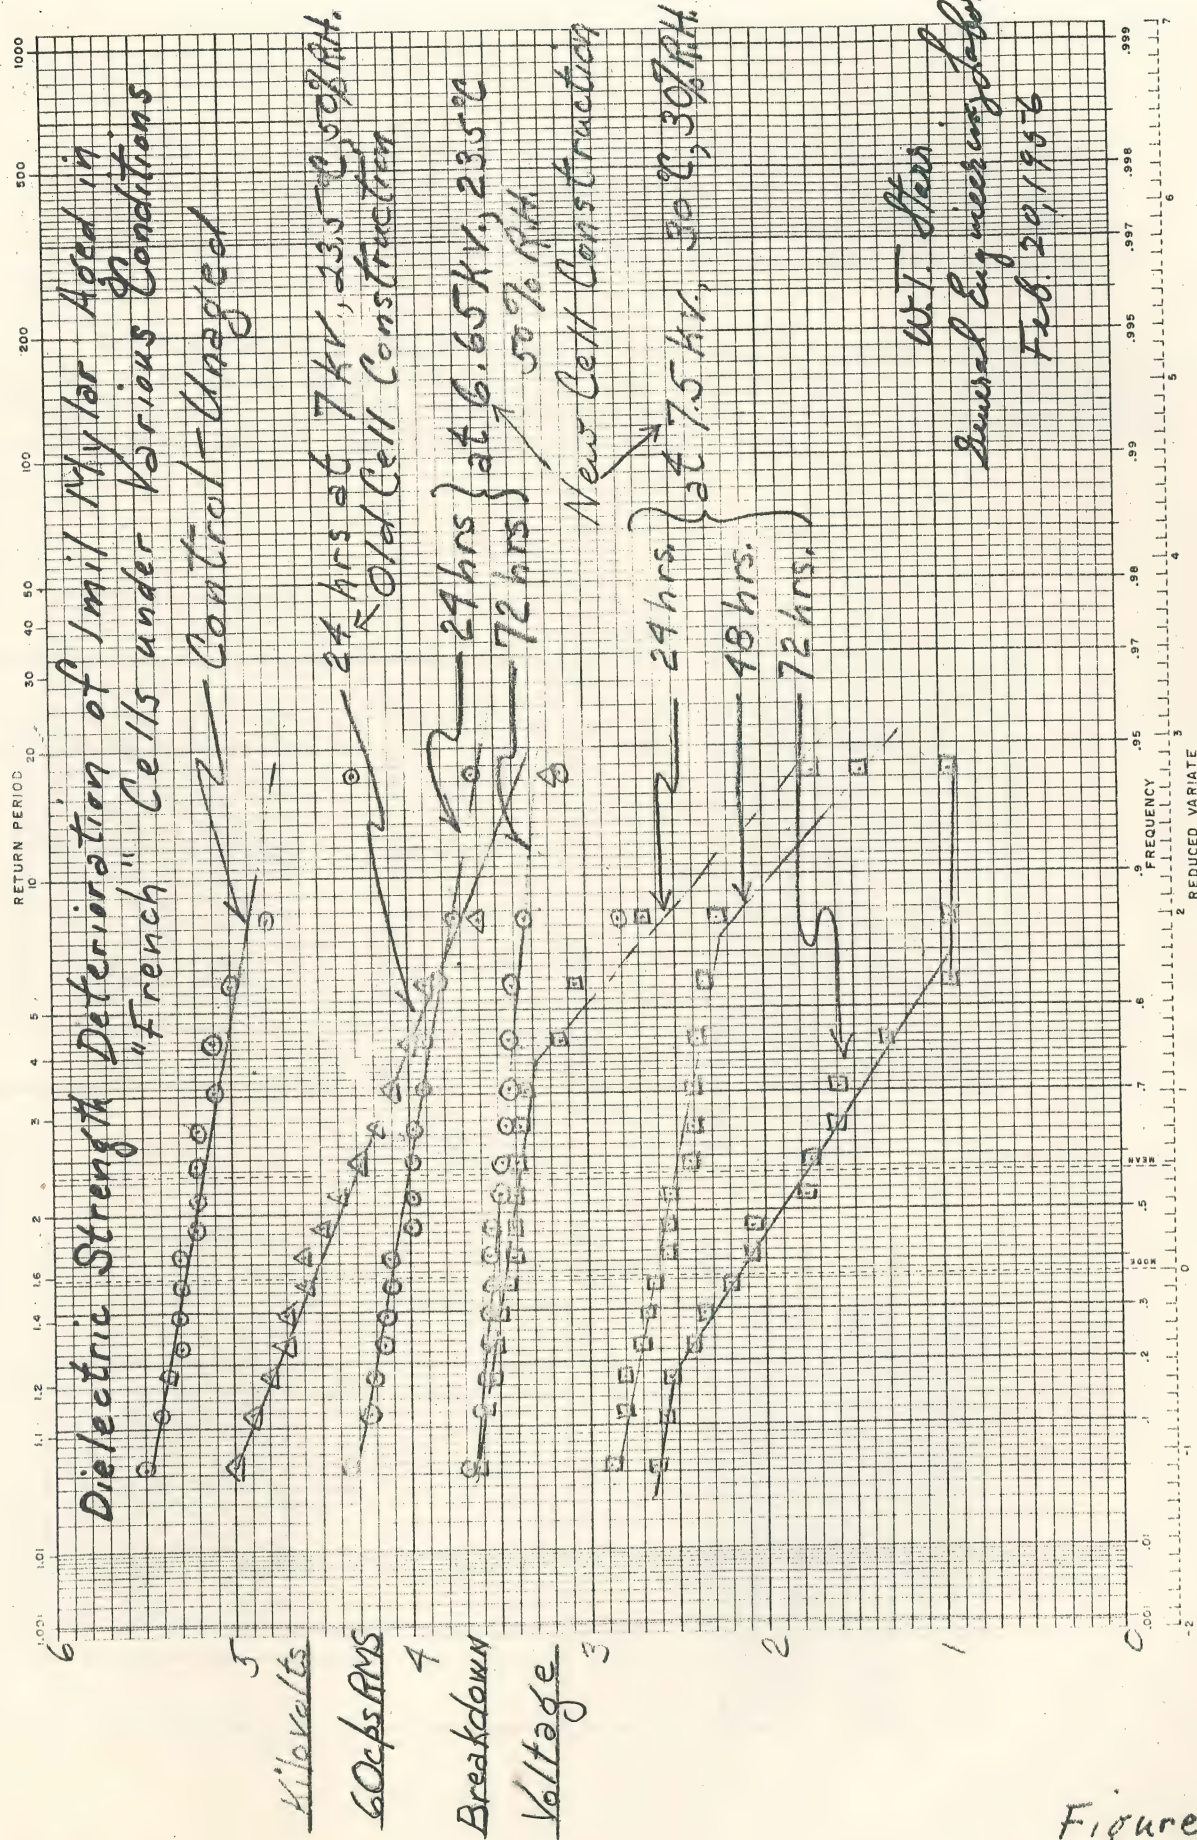 RETURN PERIOD
1.001 1.01 1.1 1.2 1.4 1.6 2 3 4 5 10 20 30 40 50 100 200 500 1000
Dielectric Strength Deterioration of 1 mil Mylar Aged in
"French" Cells under Various Conditions
Control - Unaged
24 hrs at 7 KV., 23.5 °C, 50% R.H.
Old Cell Construction
24 hrs
at 6.65 KV., 23.5 °C
72 hrs
50% R.H.
New Cell Construction
24 hrs.
at 7.5 KV., 30 °C, 30% R.H.
48 hrs.
72 hrs.
W.T. Starr
General Engineering
Feb. 20, 1956
6
5
Kilovolts
60cps RMS
4
Breakdown
Voltage
3
2
1
0
MODE
MEAN
.001 .01 .1 .2 .3 .5 .7 .8 .9 .95 .97 .98 .99 .995 .997 .998 .999
FREQUENCY
-2 -1 0 1 2 3 4 5 6 7
REDUCED VARIATE
Figure